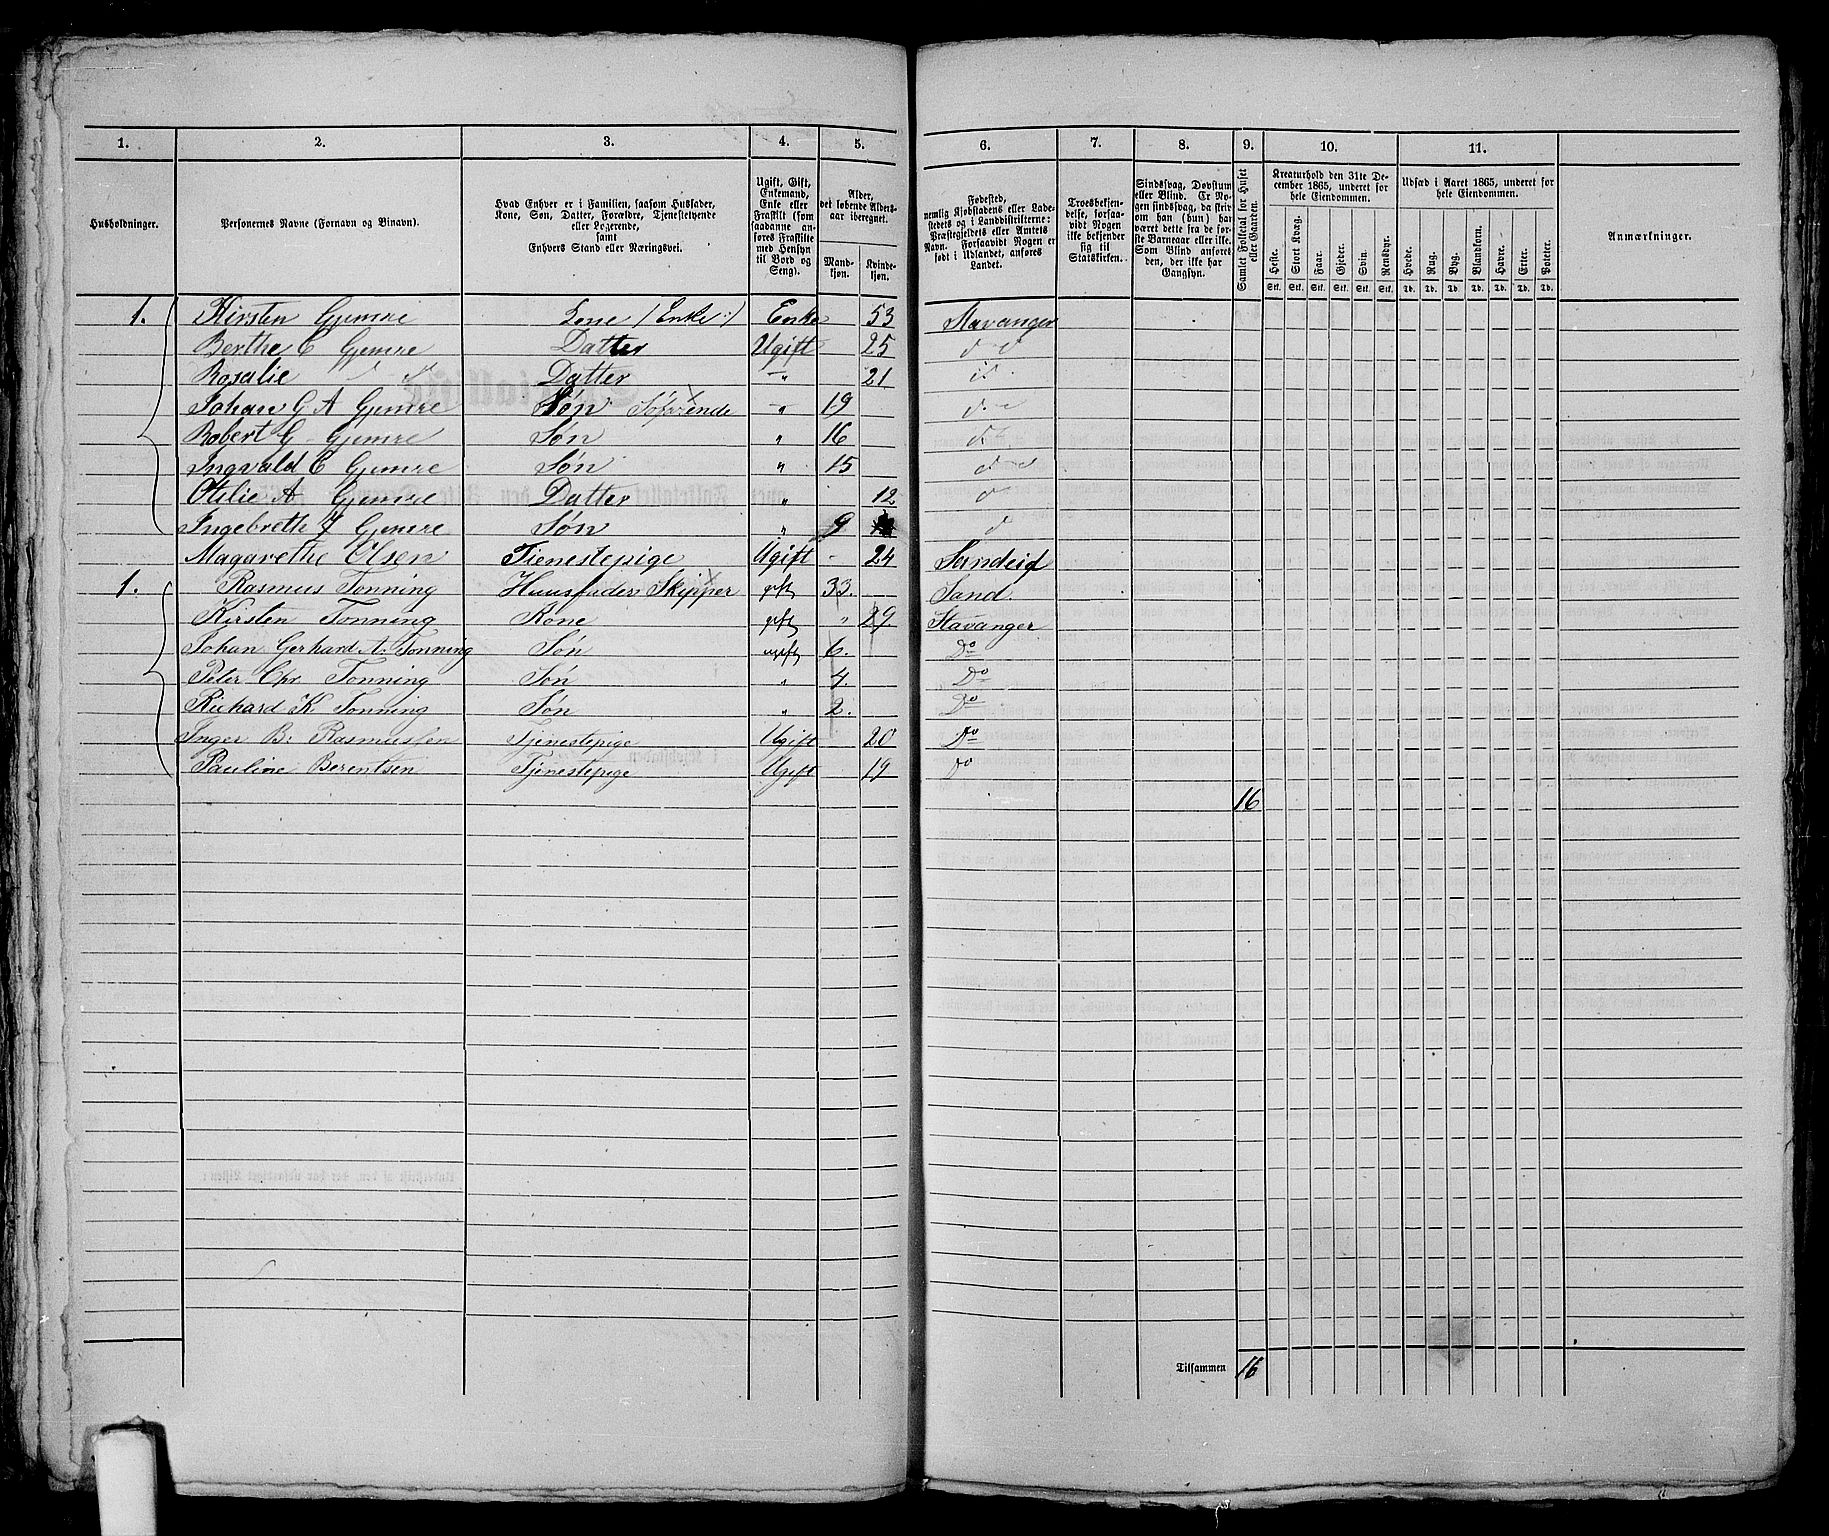 1. 2. 3. 4. 5. 6. 7. 8. 9. 10. 11.
Husholdninger.
Personernes Navne (Fornavn og Binavn).
Hvad Enhver er i Familien, saasom Husfader,
Kone, Søn, Datter, Forældre, Tjenestetyende
eller Logerende,
samt
Enhvers Stand eller Næringsvei.
Ugift, Gift,
Enkemand,
Enke eller
Fraskilt (som
saadanne an-
føres Fraskilte
med Hensyn
til Bord og
Seng).
Alder,
det løbende Alders-
aar iberegnet.
Mand-
kjøn.
Kvinde-
kjøn.
Fødested,
nemlig Kjøbstadens eller Lade-
stedets og i Landdistrikterne:
Præstegjeldets eller Amtets
Navn. Forsaavidt Nogen er
født i Udlandet, anføres
Landet.
Troesbekjen-
delse, forsaa-
vidt Nogen
ikke bekjender
sig til
Statskirken.
Sindssvag, Døvstum
eller Blind. Er No-
gen sindssvag, da skriv
om han (hun) har
været dette fra de før-
ste Barneaar eller ikke.
Som Blind anføres
den, der ikke har
Gangsyn.
Samlet Folketal for Huset
eller Gaarden.
Kreaturhold den 31te De-
cember 1865, underet for
hele Eiendommen.
Heste. Stort Kvæg. Faar. Gjeder. Svin. Rensdyr.
Stk. Stk. Stk. Stk. Stk. Stk.
Udsæd i Aaret 1865, underet for
hele Eiendommen.
Hvede. Rug. Byg. Blandkorn. Havre. Erter. Poteter.
Td. Td. Td. Td. Td. Td. Td.
Anmærkninger.
1. Kirsten Gjemre (Enke) Enke 53 Stavanger
Berthe C Gjemre Datter Ugift 25 do
Rosalie do Datter " 21 d
Johan G A Gjemre Søn Søfarende " 19 do
Robert G Gjemre Søn " 16 d
Ingvald C Gjemre Søn " 15 do
Otilie A Gjemre Datter " 12 do
Ingebreth J Gjemre Søn " 9 d
Magarethe Olsen Tienestepige Ugift - 24 Sandeid
1. Rasmus Tonning Huusfader Skipper gift 33. Sand
Kirsten Tonning Kone gift " 29. Stavanger
Johan Gerhard A. Tonning Søn ugift 6. Do
Peter Chr Tonning Søn " 4. Do
Richard K Tonning Søn " 2. Do
Inger B. Rasmussen Tjenestepige Ugift 20 Do
Pauline Berentsen Tjenestepige Ugift 19 Do
16
Tilsammen 16